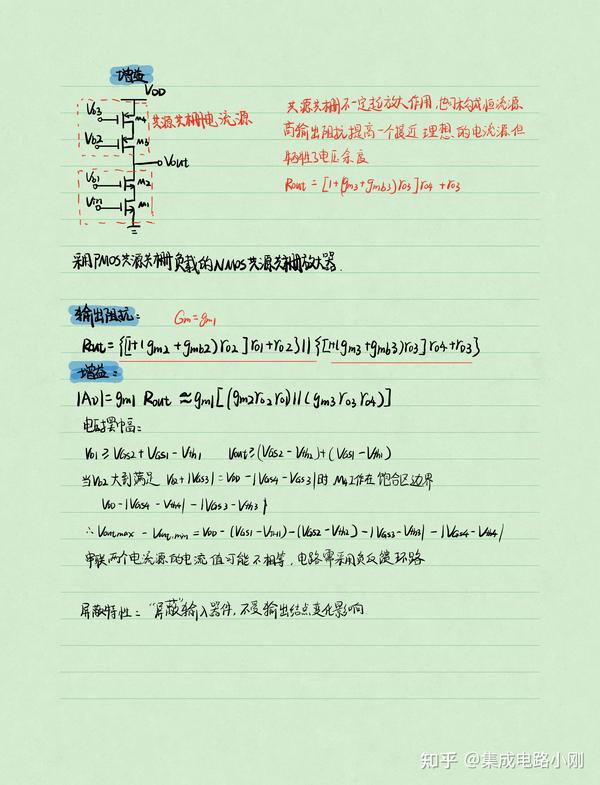 增益
VDD
Vb3
M4
共源共栅电流源
Vb2
M3
Vout
Vb1
M2
Vin
M1
共源共栅不一定起放大作用,也可构成恒流源
高输出阻抗提高一个接近理想的电流源但
牺牲了电压余度
Rout = [1+(gm3+gmb3)ro3]ro4 + ro3
采用PMOS共源共栅负载的NMOS共源共栅放大器.
输出阻抗: Gm=gm1
Rout={[1+(gm2+gmb2)ro2]ro1+ro2}||{[1+(gm3+gmb3)ro3]ro4+ro3}
增益:
|Av|=gm1 Rout ≈gm1[(gm2ro2ro1)||(gm3ro3ro4)]
电压摆幅:
Vb1 ≥ VGS2+VGS1-Vth1 Vout≥(VGS2-Vth2)+(VGS1-Vth1)
当Vb2大到满足 Vb2+|VGS3|=VDD-|VGS4-VGS3|时 M4工作在饱合区边界
VDD-|VGS4-Vth4|-|VGS3-Vth3|
∴Vout,max - Vout,min=VDD-(VGS1-Vth1)-(VGS2-Vth2)-|VGS3-Vth3|-|VGS4-Vth4|
串联两个电流源的电流值可能不相等,电路需采用负反馈环路
屏蔽特性:"屏蔽"输入器件,不受输出结点变化影响
知乎 @集成电路小刚